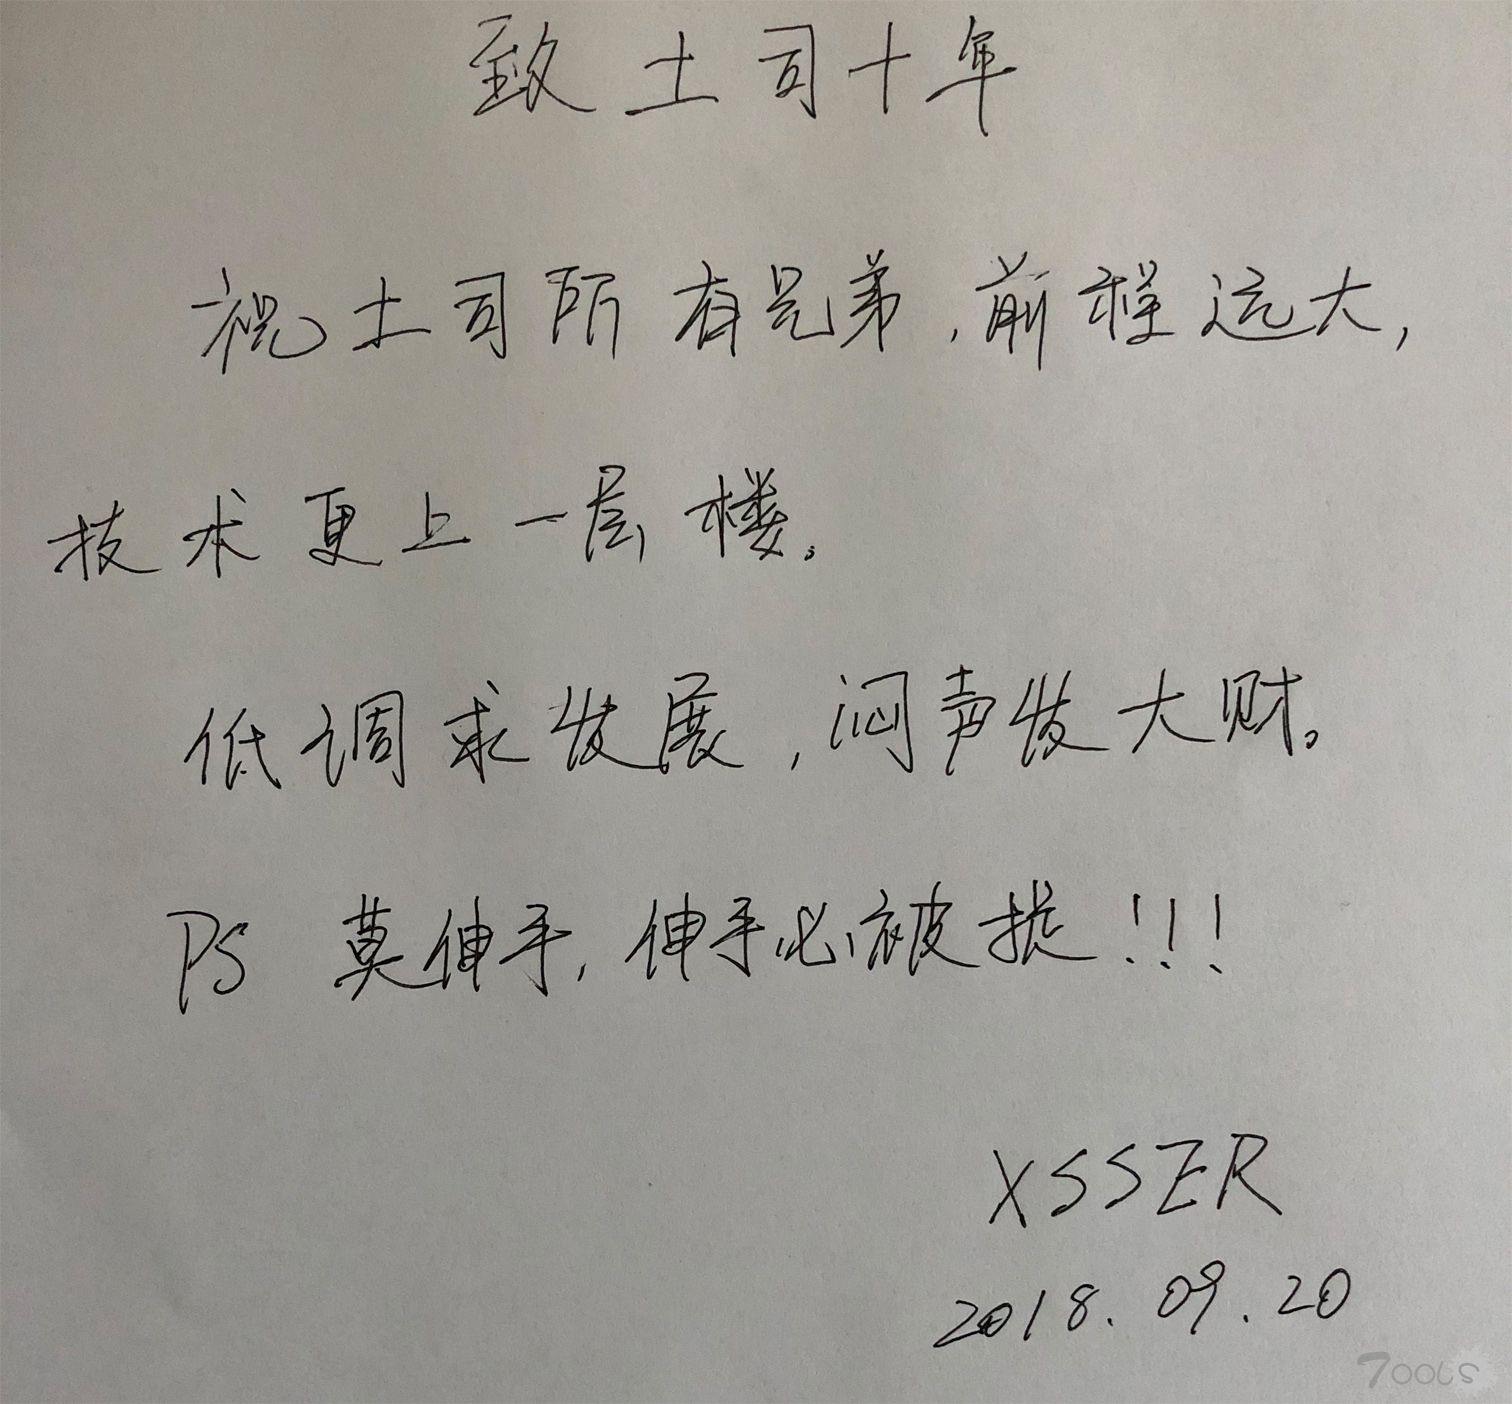 致土司十年
祝土司所有兄弟,前程远大,
技术更上一层楼。
低调求发展,闷声发大财。
PS 莫伸手,伸手必被捉!!!
XSSER
2018.09.20
TOOLS